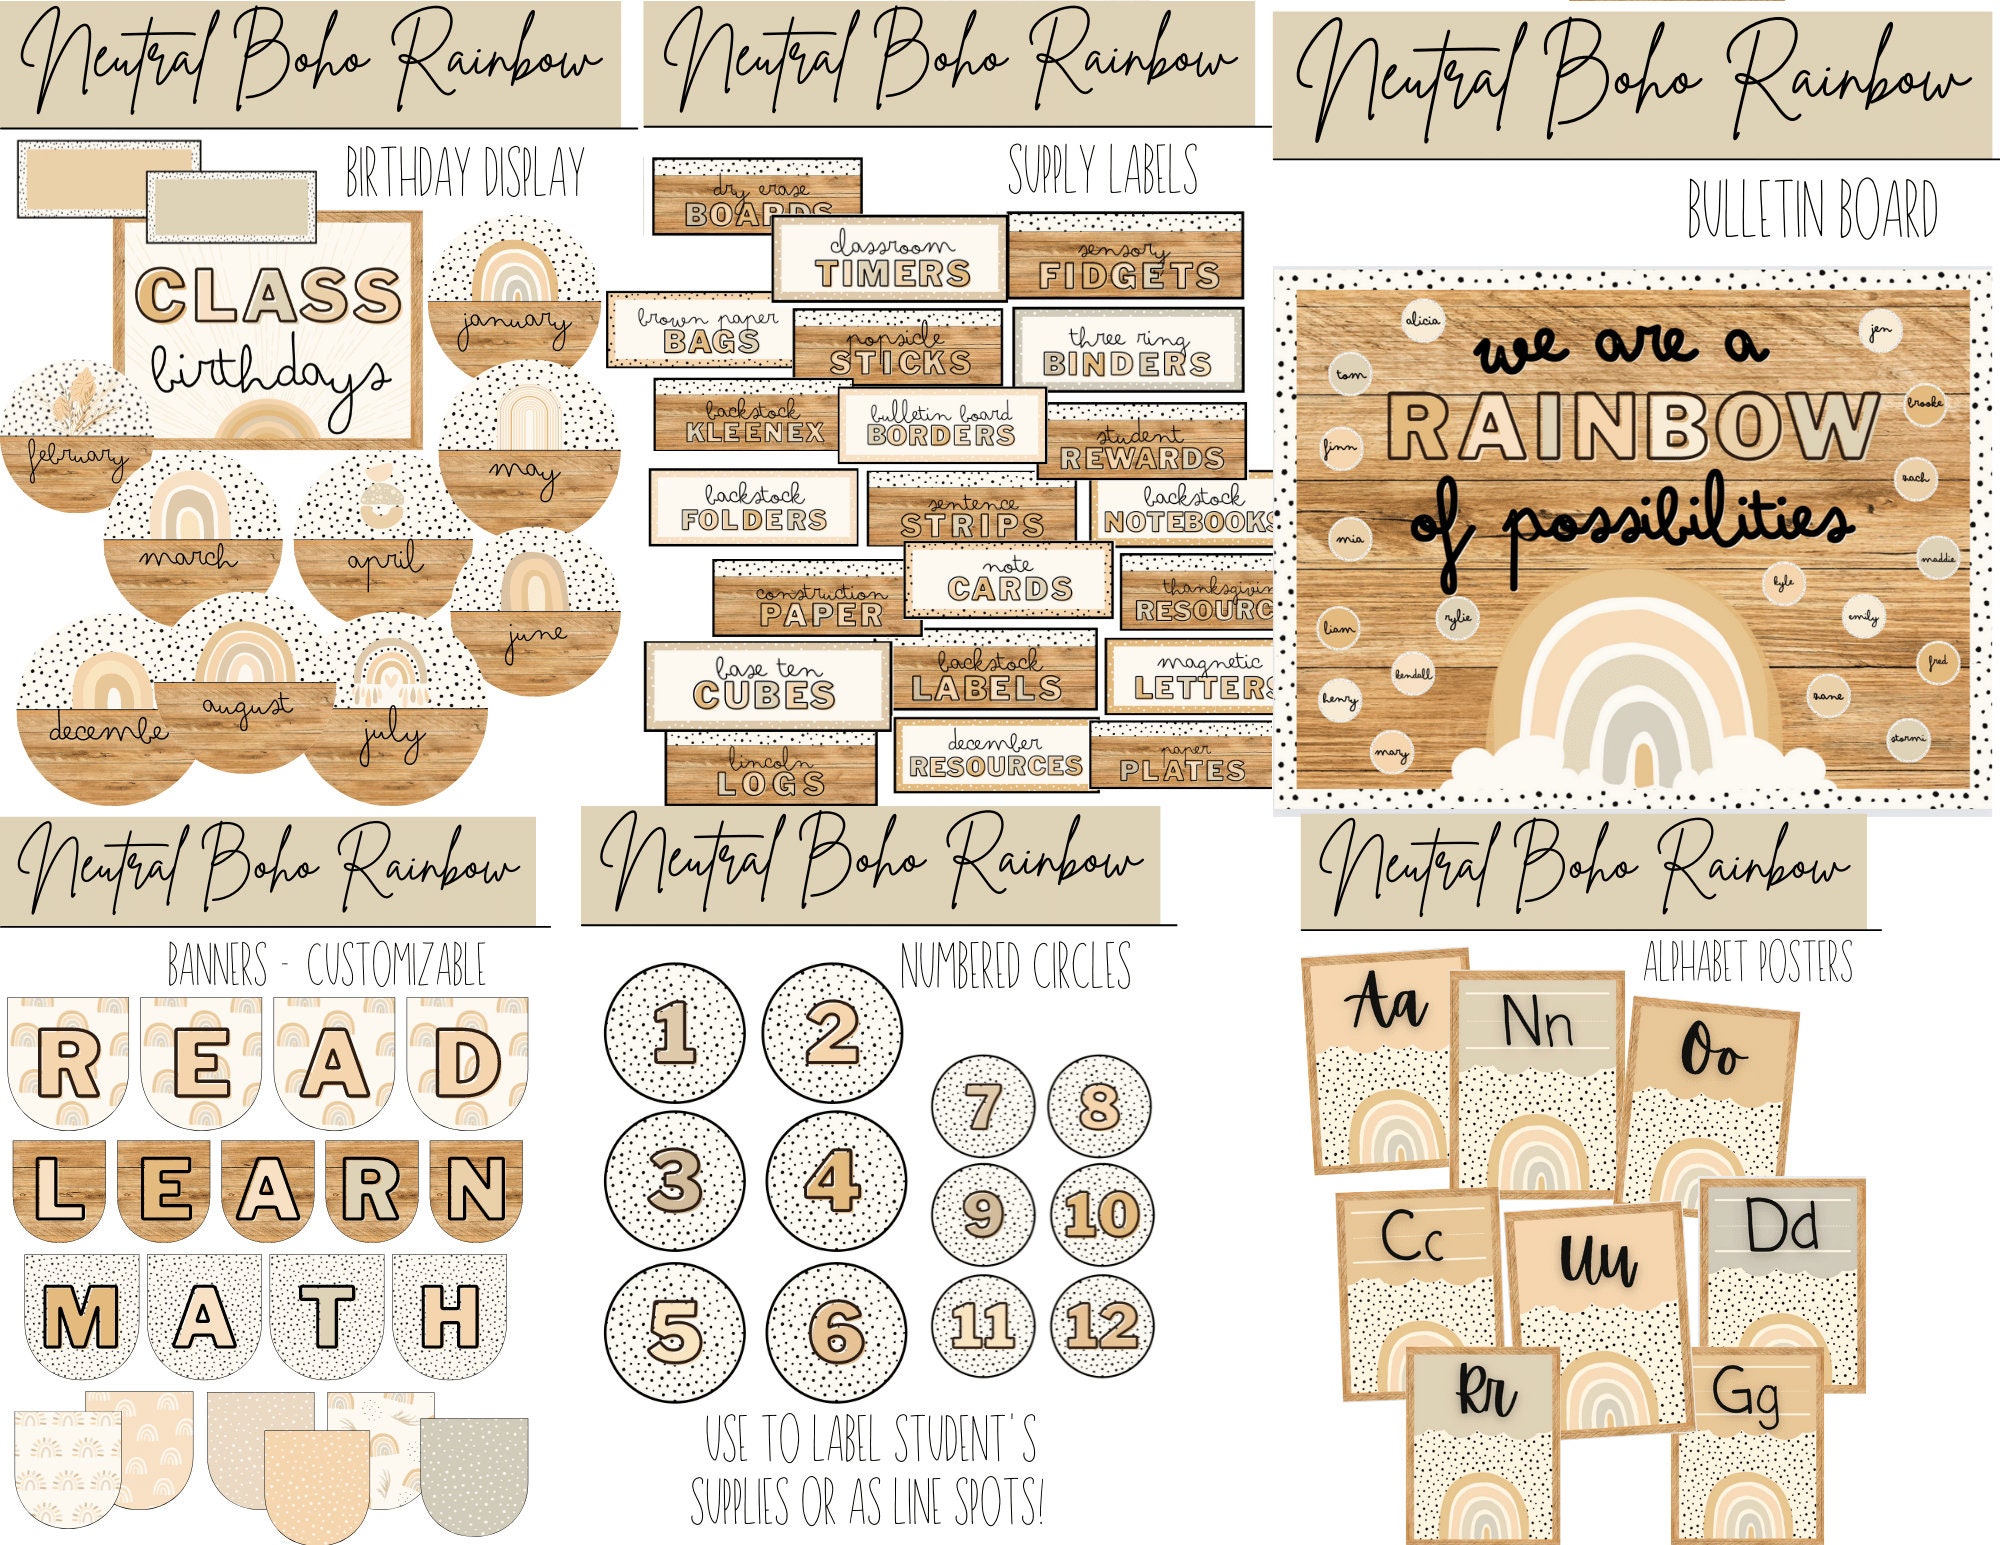 Neutral Boho Rainbow
BIRTHDAY DISPLAY
CLASS
birthdays
january
february
may
march
april
june
december
august
july
Neutral Boho Rainbow
SUPPLY LABELS
dry erase
BOARDS
classroom
TIMERS
sensory
FIDGETS
brown paper
BAGS
popsicle
STICKS
three ring
BINDERS
backstock
KLEENEX
bulletin board
BORDERS
student
REWARDS
backstock
FOLDERS
sentence
STRIPS
backstock
NOTEBOOKS
construction
PAPER
note
CARDS
thanksgivin
RESOURC
base ten
CUBES
backstock
LABELS
magnetic
LETTERS
lincoln
LOGS
december
RESOURCES
paper
PLATES
Neutral Boho Rainbow
BULLETIN BOARD
we are a
RAINBOW
of possibilities
alicia
jen
tom
brooke
finn
zach
mia
maddie
kyle
liam
rylie
emily
kendall
fred
henry
zane
mary
stormi
Neutral Boho Rainbow
BANNERS - CUSTOMIZABLE
READ
LEARN
MATH
Neutral Boho Rainbow
NUMBERED CIRCLES
1 2
3 4
5 6
7 8
9 10
11 12
USE TO LABEL STUDENT'S
SUPPLIES OR AS LINE SPOTS!
Neutral Boho Rainbow
ALPHABET POSTERS
Aa
Nn
Oo
Cc
Uu
Dd
Rr
Gg